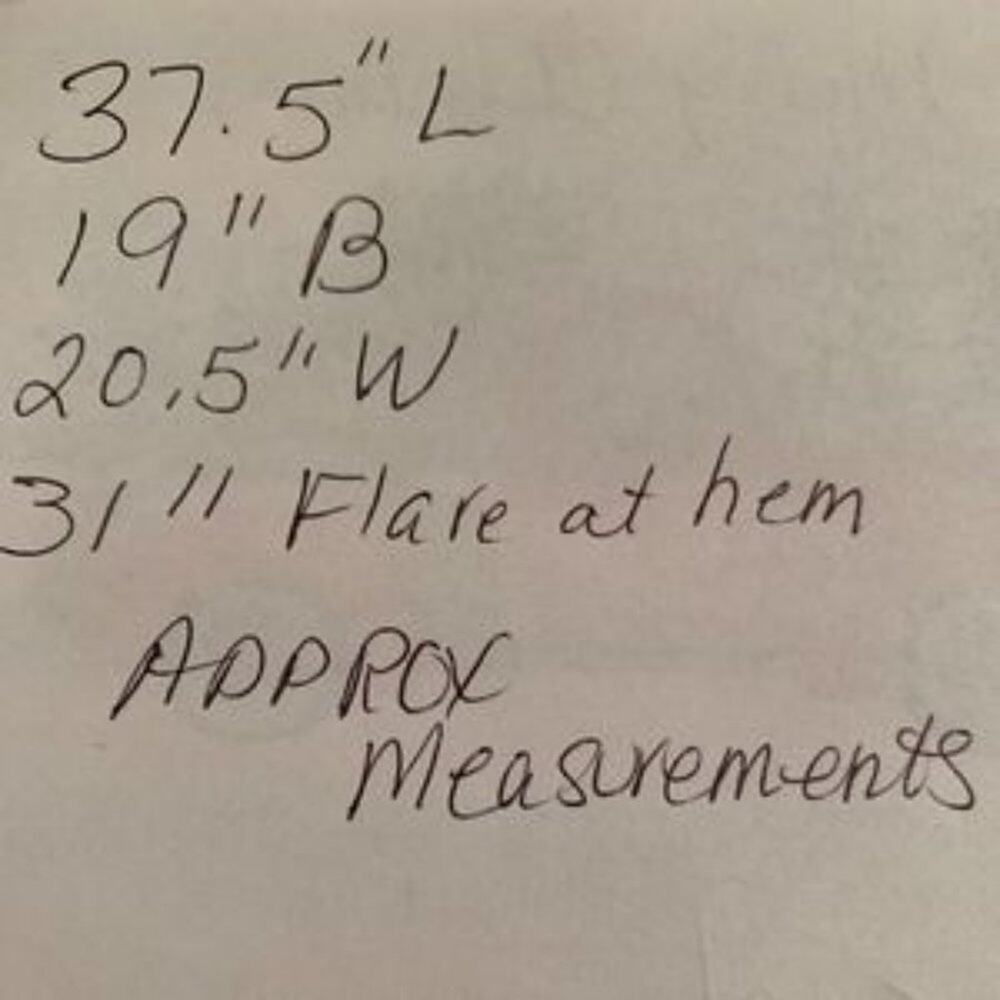 37.5" L
19" B
20.5" W
31" Flare at hem
APPROX
Measurements